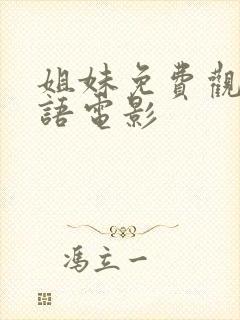 姐妹免費觀
語電影
馮立一